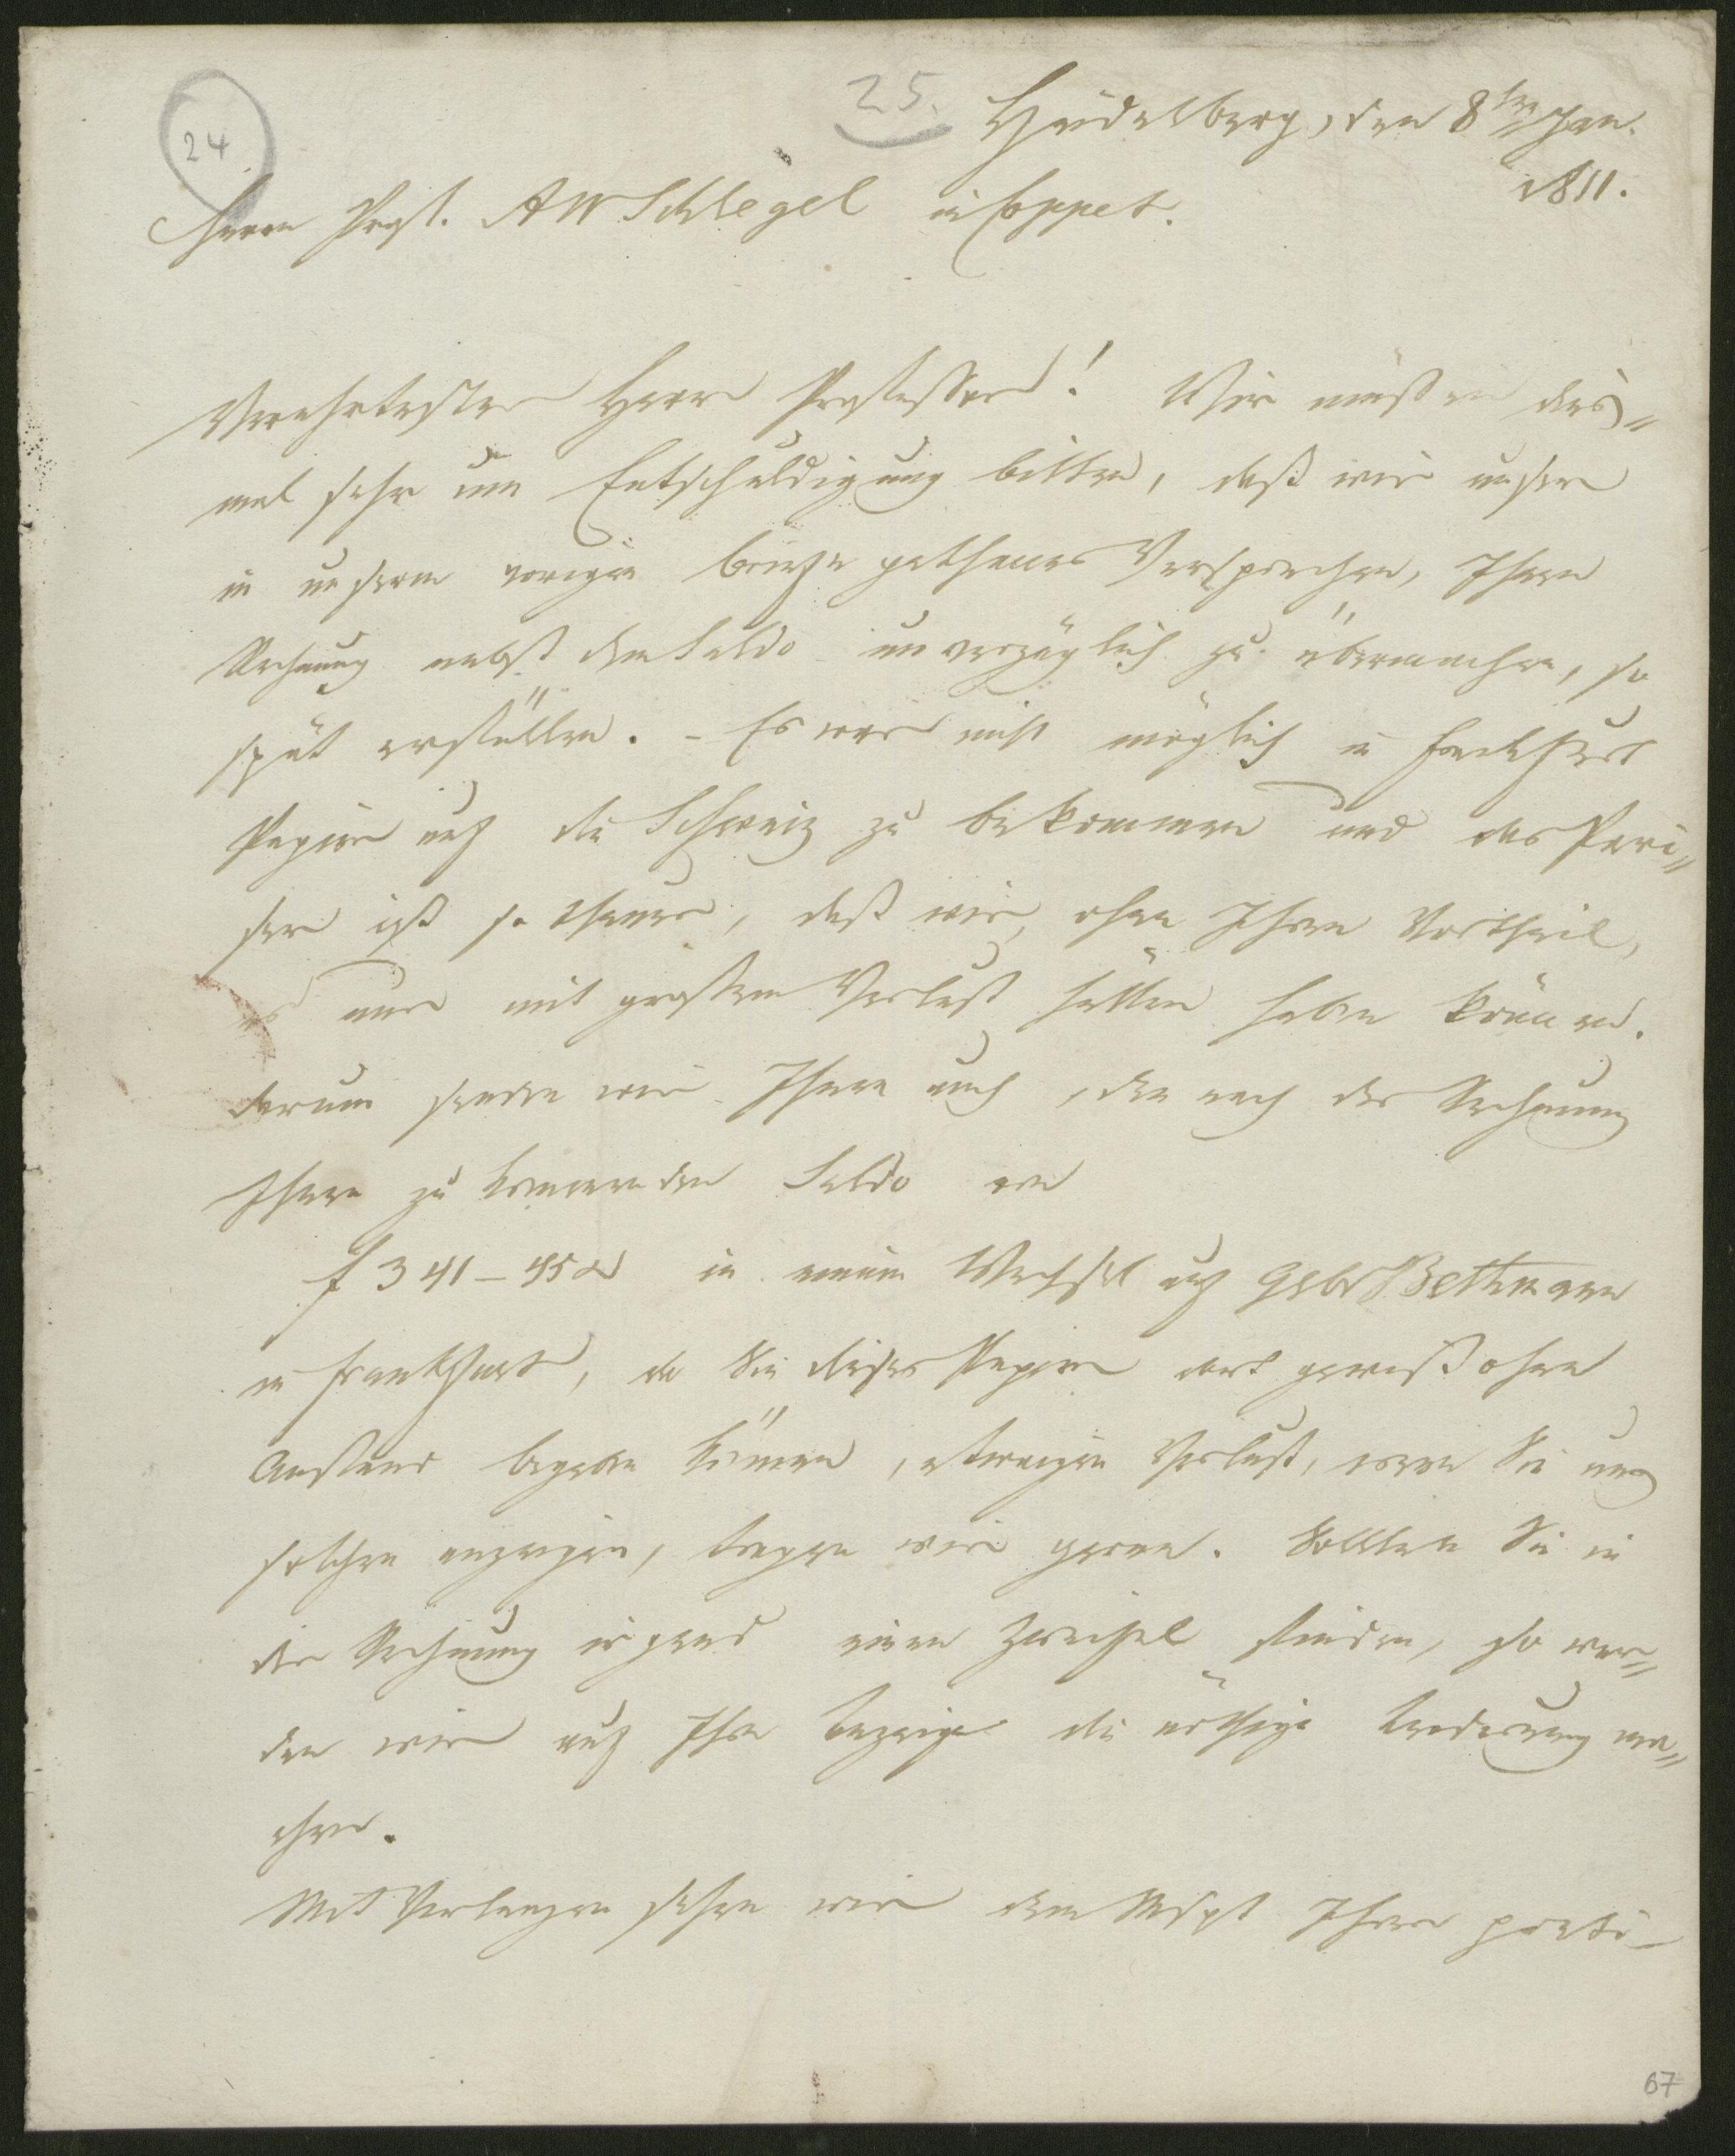 24
25.
Heidelberg, den 8ten Jan.
1811.
Herrn Prof. AW Schlegel in Coppet.
Verehrtester Herr Professor! Wir müssen dies=
mal sehr um Entschuldigung bitten, daß wir unser
in unserm vorigen Briefe gethanes Versprechen, Ihnen
Rechnung nebst dem Saldo unverzüglich zu übermachen, so
spät erfüllen. – Es war nicht möglich in Frankfurt
Papier auf die Schweiz zu bekommen und das Pari=
ser ist so theuer, daß wir, ohne Ihren Vortheil,
es nur mit großem Verlust hätten haben können.
Darum senden wir Ihnen auch, den nach der Rechnung
Ihnen zukommenden Saldo von
f 341–45 in einem Wechsel auf Gebr Bethmann
in Frankfurt, da Sie dieses Papier dort gewiß ohne
Anstand begeben können, etwaigen Verlust, wenn Sie uns
solchen anzeigen, tragen wir gerne. Sollten Sie in
der Rechnung irgend einen Zweifel finden, so wer=
den wir auf Ihre Anzeige die nöthige Aenderung ma=
chen.
Mit Verlangen sehen wir dem Mspt Ihrer poeti–
67